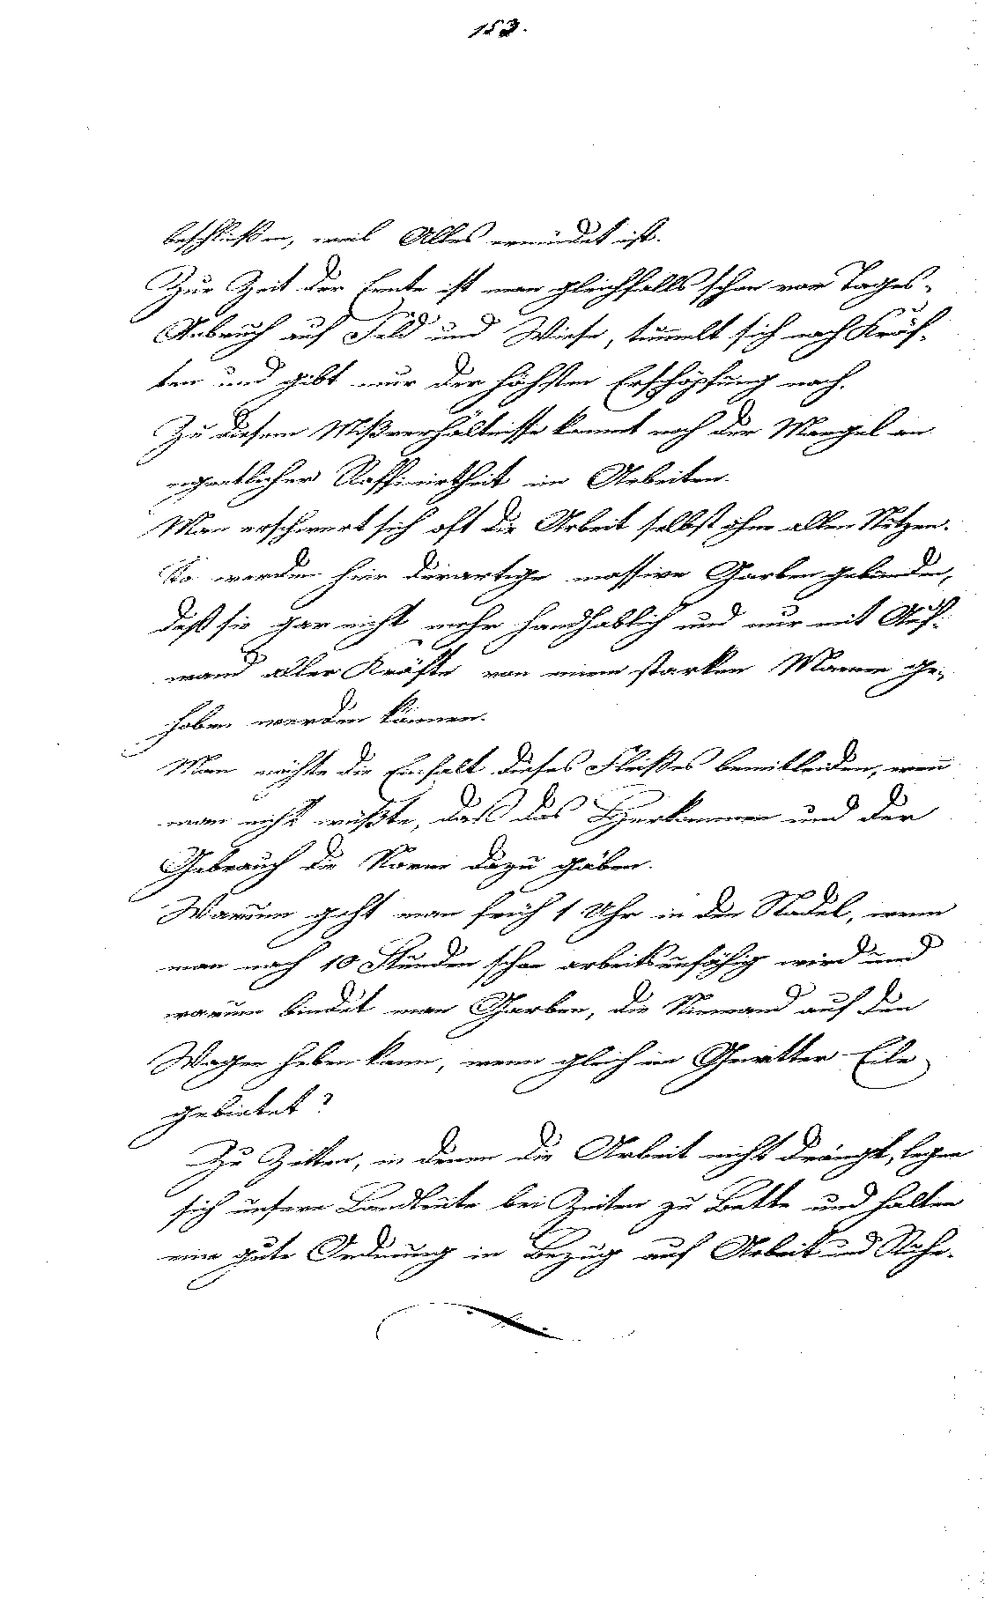 153.
beschließen, weil Alles ermüdet ist.
Zur Zeit der Ernte ist man gleichfalls schon vor Tages-
Anbruch auf Feld und Wiese, tummelt sich nach Kräf-
ten und gibt nur der höchsten Erschöpfung nach.
Zu diesem Mißverhältnisse kommt noch der Mangel an
eigentlicher Raffinirtheit im Arbeiten.
Man erschwert sich oft die Arbeit selbst ohne allen Nutzen.
So werden hier derartige massive Garben gebunden,
daß sie gar nicht mehr handhablich und nur mit Auf-
wand aller Kräfte von einem starken Manne ge-
hoben werden können.
Man möchte die Einfalt dieses Fleißes bemitleiden, wenn
man nicht wüßte, daß das Herkommen und der
Gebrauch die Norm dazu gäben.
Warum geht man früh 1 Uhr in den Stadel, wenn
man nach 10 Stunden schon arbeitsunfähig wird und
warum bindet man Garben, die Niemand auf den
Wagen heben kann, wenn gleich ein Gewitter Eile
gebietet?
Zu Zeiten, in denen die Arbeit nicht drängt, legen
sich unsere Landleute bei Zeiten zu Bette und halten
eine gute Ordnung in Bezug auf Arbeit und Ruhe.